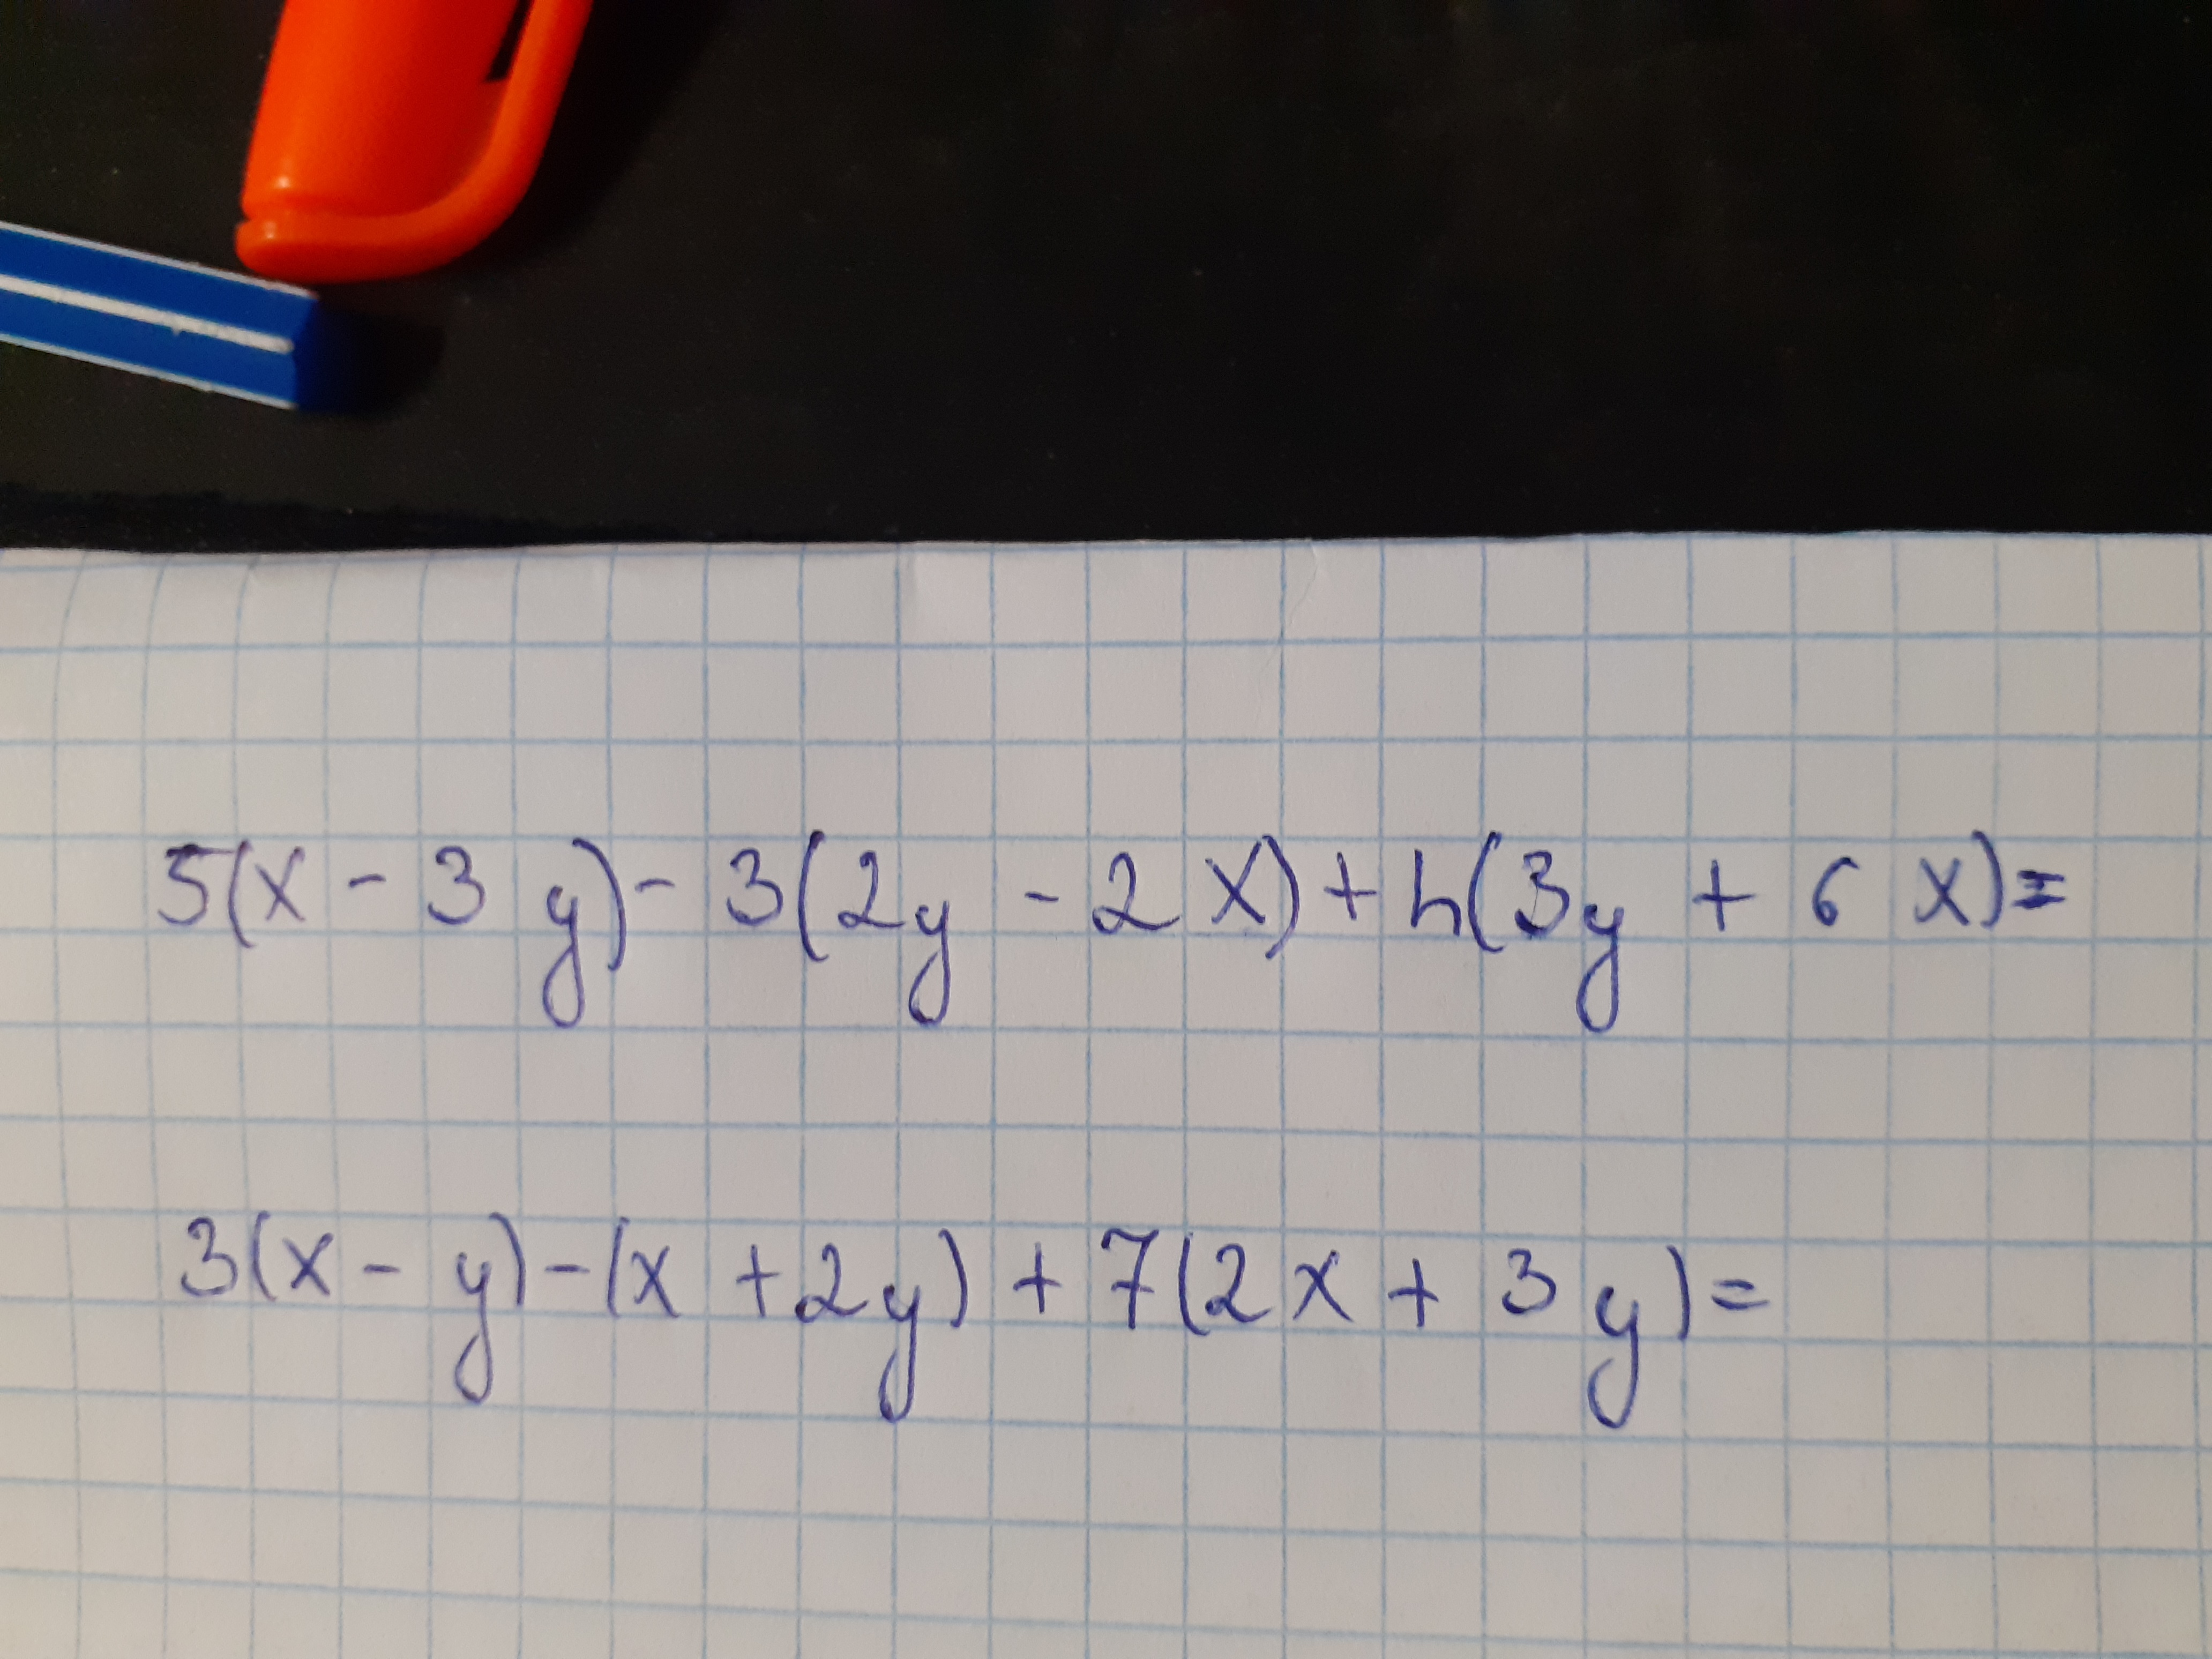 5(x - 3y) - 3(2y - 2x) + 4(3y + 6x) =
3(x - y) - (x + 2y) + 7(2x + 3y) =